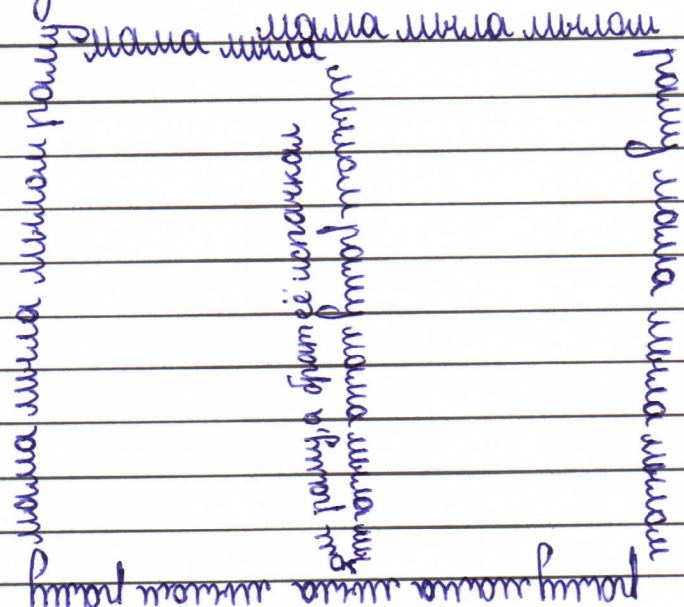 мама мыла мылом
раму мама мыла мылом
раму мама мыла мылом раму
мама мыла мылом раму
мама мыла
мылом раму мама мыла мы
лом раму, а брат её испачкал